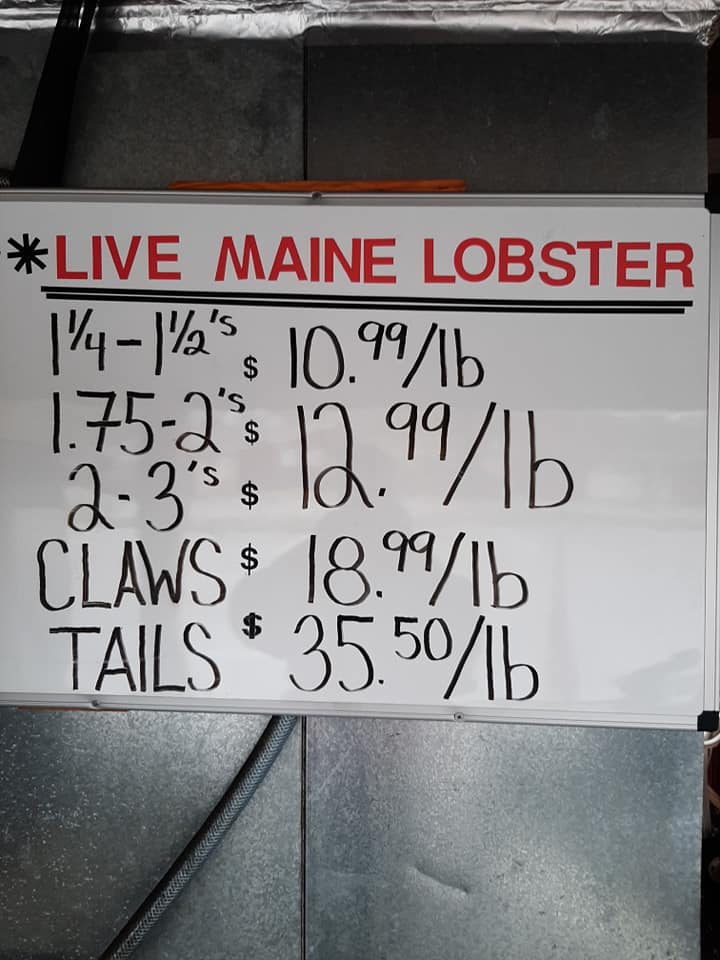 *LIVE MAINE LOBSTER
1¼-1½'s $ 10.99/lb
1.75-2's $ 12.99/lb
2-3's $
CLAWS $ 18.99/lb
TAILS $ 35.50/lb